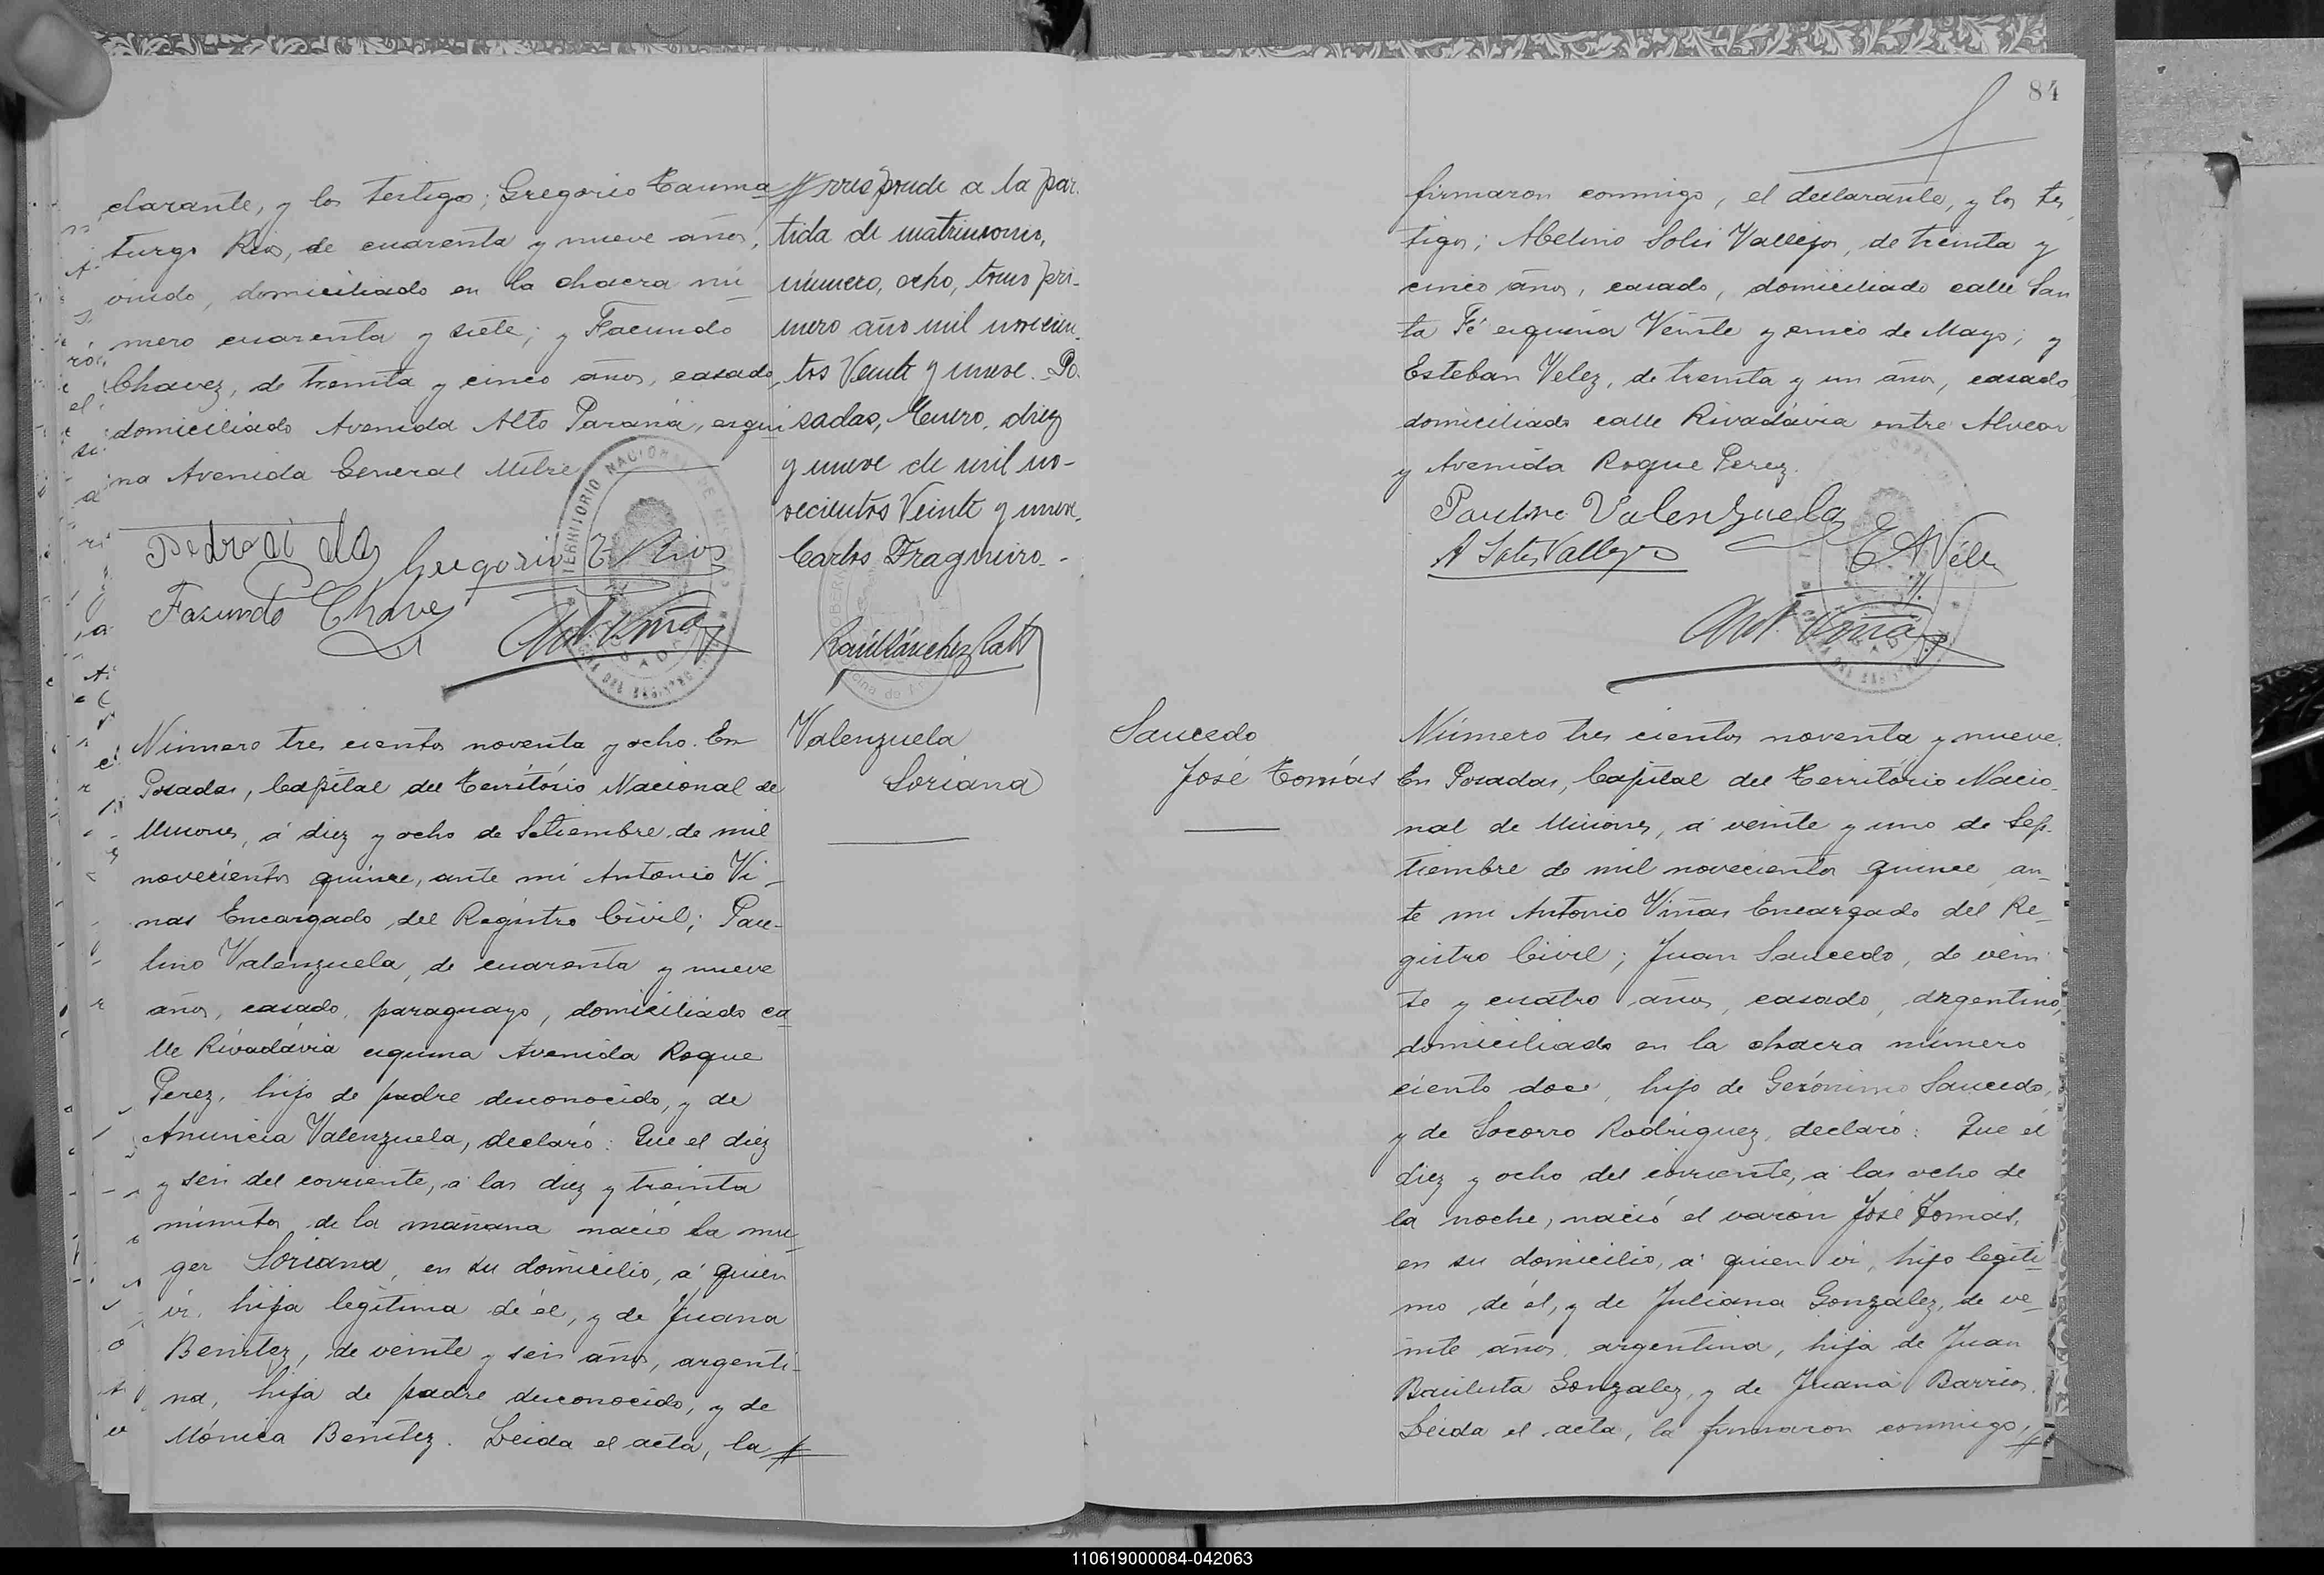 clarante, y los testigos; Gregorio Tauma
turgo Rios, de cuarenta y nueve años,
viudo, domiciliado en la chacra nú
mero cuarenta y siete; y Facundo
Chavez, de treinta y cinco años, casado,
domiciliado Avenida Alto Paraná, esqui
na Avenida General Mitre
Gregorio T. Rios
Facundo Chavez
Ant. Viñas
TERRITORIO NACIONAL DE MISIONES
rresponde a la par-
tida de matrimonio,
número, ocho, tomo pri-
mero año mil novecien-
tos Veinte y nueve. Po-
sadas, Enero, diez
y nueve de mil no-
vecientos Veinte y nueve.
Carlos Fragueiro.-
Número tres cientos noventa y ocho. En
Posadas, Capital del Território Nacional de
Misiones, á diez y ocho de Setiembre de mil
novecientos quince, ante mi Antonio Vi-
nas Encargado del Registro Civil; Pau-
lino Valenzuela, de cuarenta y nueve
años, casado, paraguayo, domiciliado ca-
lle Rivadávia esquina Avenida Roque
Perez, hijo de padre desconocido, y de
Anuncia Valenzuela, declaró: Que el diez
y seis del corriente, á las diez y treinta
minutos de la mañana nació la mu-
ger Soriana, en su domicilio, á quien
vi, hija legítima de él, y de Juana
Benitez, de veinte y seis años, argenti-
na, hija de padre desconocido, y de
Mónica Benitez. Leida el acta, la
Valenzuela
Soriana
84
firmaron conmigo, el declarante, y los tes
tigos; Abelino Solis Vallejos, de treinta y
cinco años, casado, domiciliado calle San
ta Fé esquina Veinte y cinco de Mayo; y
Esteban Velez, de treinta y un años, casado
domiciliado calle Rivadávia entre Alvear
y Avenida Roque Perez.
Paulino Valenzuela
E A Vélez
Ant. Viñas
Saucedo
José Tomás
Número tres cientos noventa y nueve.
En Posadas, Capital del Territorio Nacio-
nal de Misiones, á veinte y uno de Sep-
tiembre de mil novecientos quince, an-
te mi Antonio Viñas Encargado del Re-
gistro Civil; Juan Saucedo, de vein
te y cuatro años, casado, argentino,
domiciliado en la chacra número
ciento doce, hijo de Gerónimo Saucedo,
y de Socorro Rodriguez, declaró: Que el
diez y ocho del corriente, á las ocho de
la noche, nació el varón José Tomás,
en su domicilio, á quien vi, hijo legíti-
mo de él, y de Juliana Gonzalez, de ve-
inte años, argentina, hija de Juan
Bautista Gonzalez, y de Juana Barrios.
Leida el acta, la firmaron conmigo,
110619000084-042063